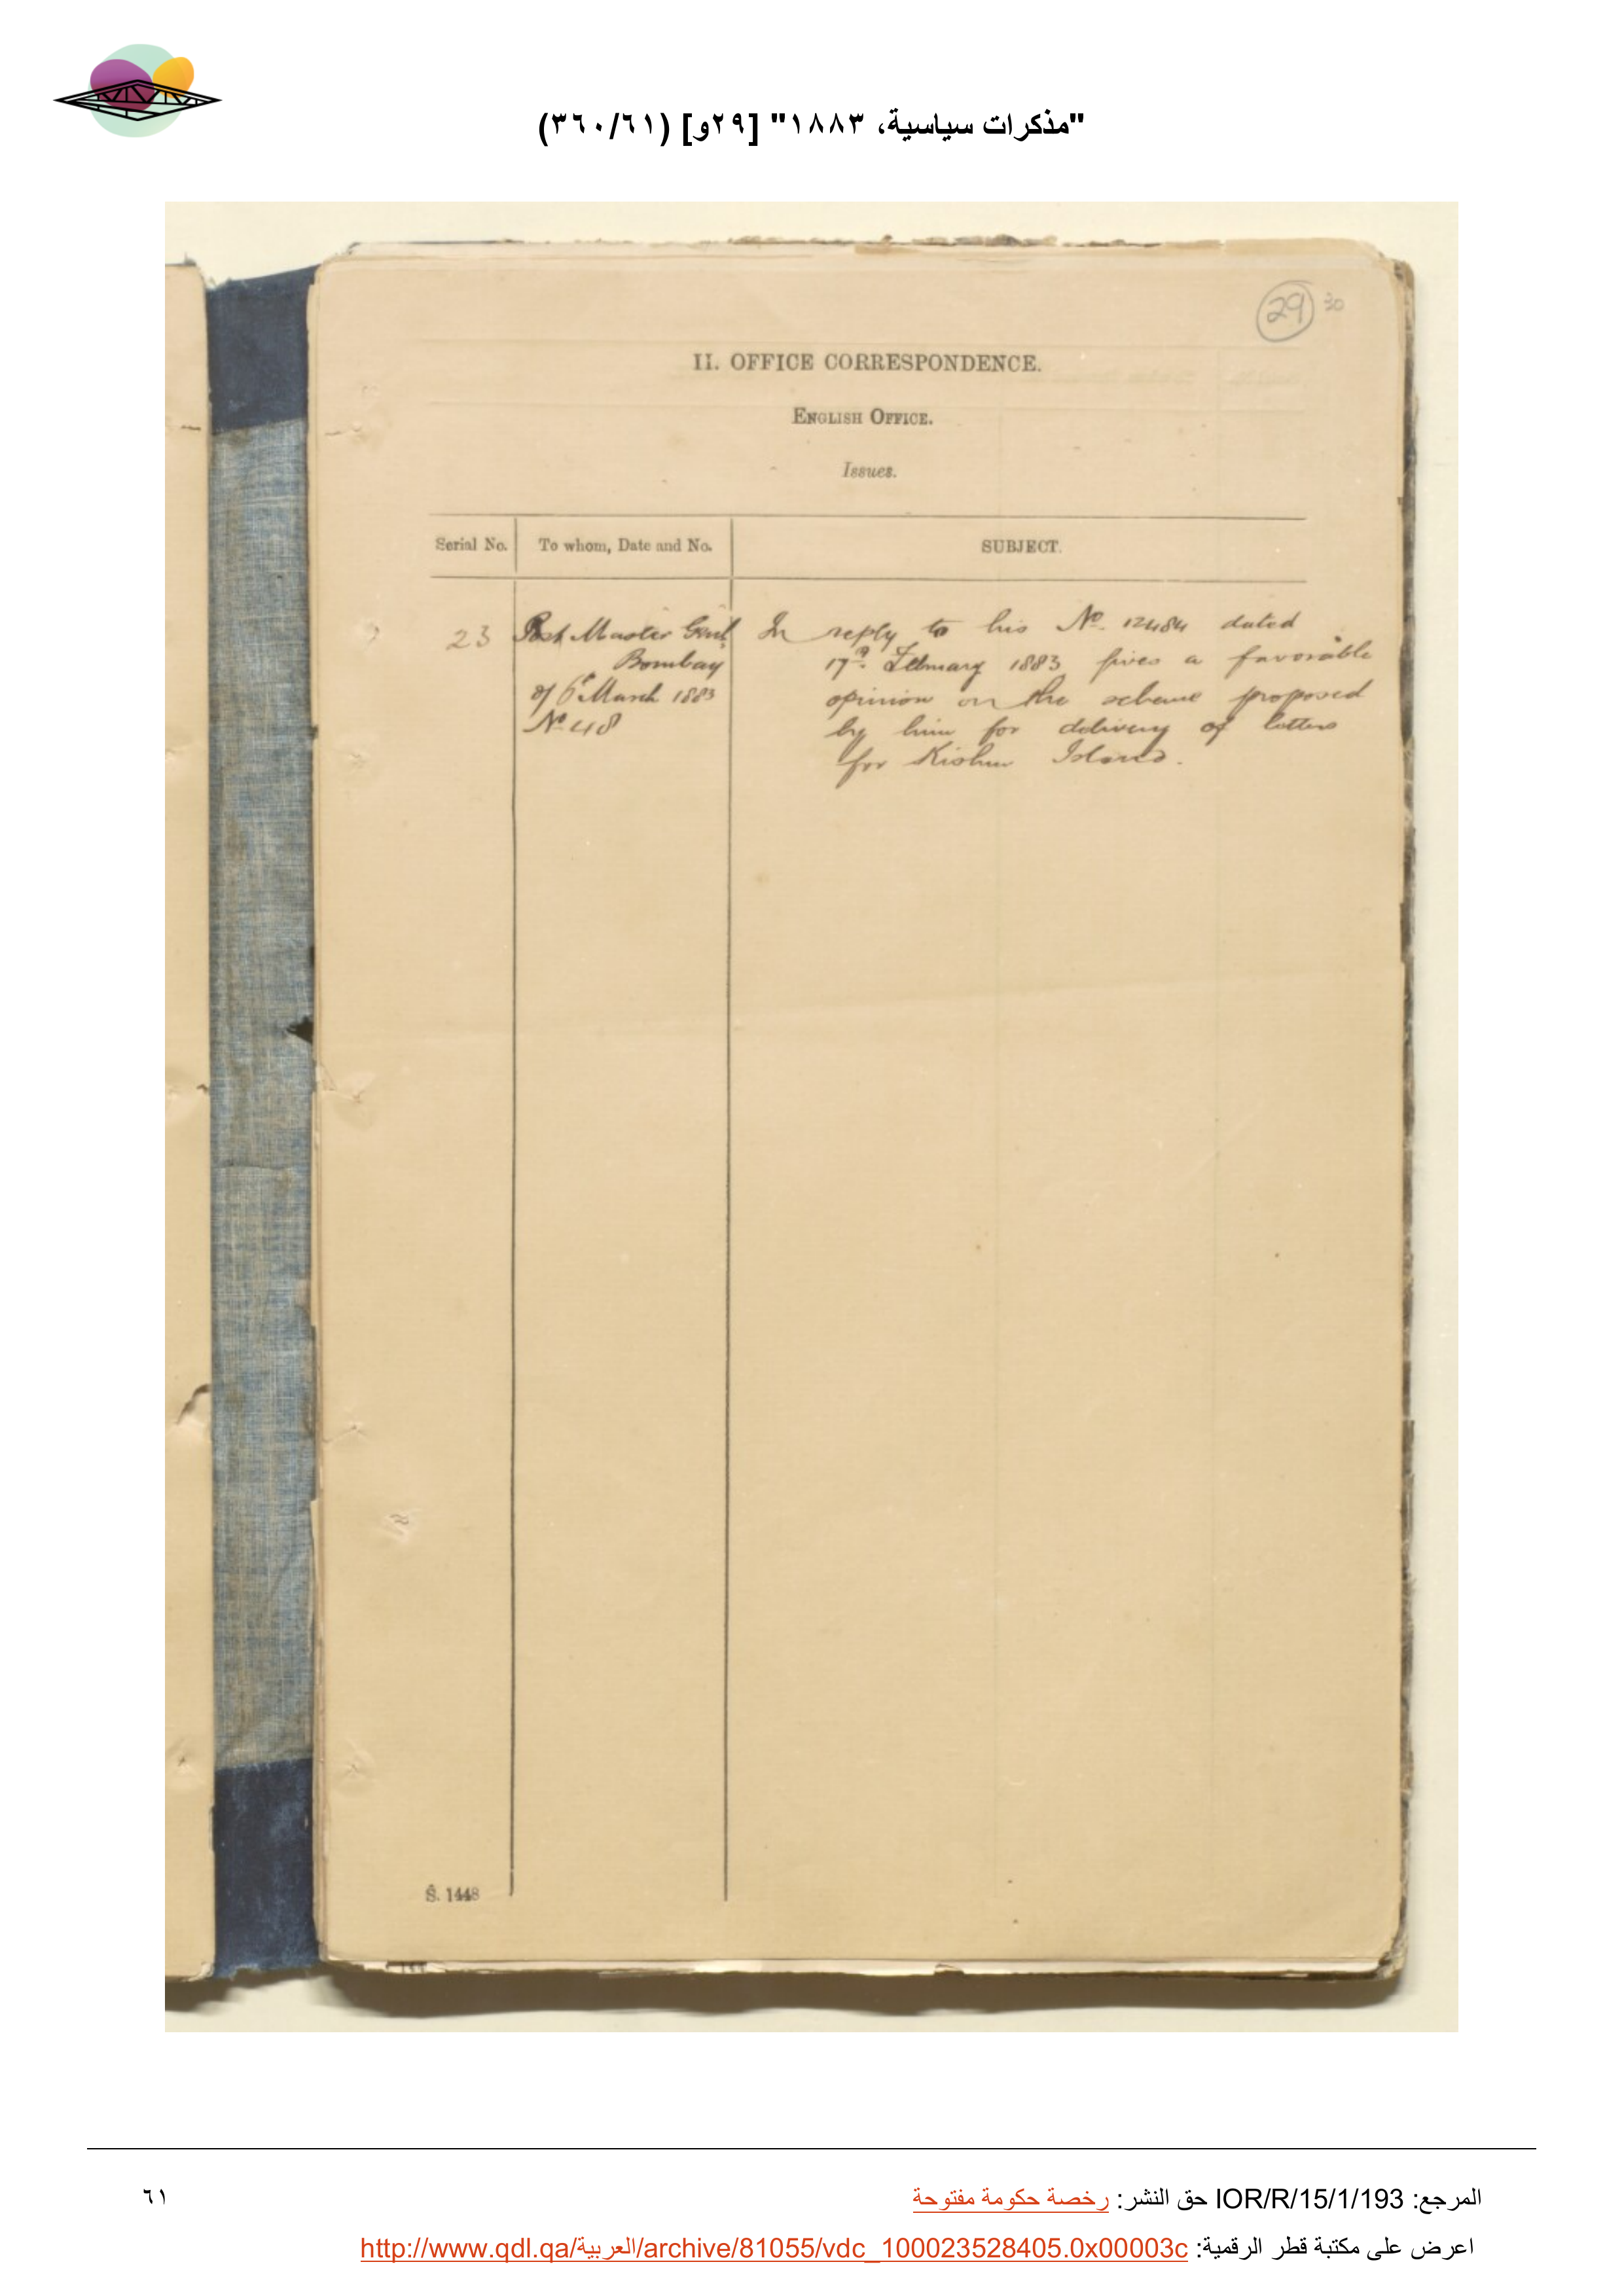 "مذكرات سياسية، ١٨٨٣" [٢٩و] (٣٦٠/٦١)
29 30
II. OFFICE CORRESPONDENCE.
ENGLISH OFFICE.
Issues.
Serial No. To whom, Date and No. SUBJECT.
23 Post Master Genl In reply to his No. 12484 dated
Bombay 17th February 1883 gives a favorable
of 6th March 1883 opinion on the scheme proposed
No 48 by him for delivery of letters
for Kishm Island.
S. 1448
المرجع: IOR/R/15/1/193 حق النشر: رخصة حكومة مفتوحة ٦١
اعرض على مكتبة قطر الرقمية: http://www.qdl.qa/العربية/archive/81055/vdc_100023528405.0x00003c